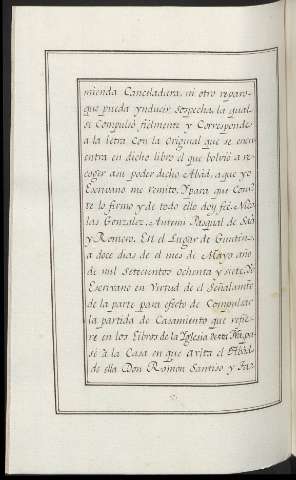 mienda Canciladura, ni otro reparo
que pueda ynducir sospecha, la qual
se Compulsó fielmente y Corresponde
a la letra Con la Original que se encu
entra en dicho libro el que bolvió a re
coger asu poder dicho Abád, a que yo
Escrivano me remito, Ypara que Cons
te lo firmo y de todo ello doy fee. Nico
las Gonzalez. Antemi Pasqual de
y Romero. En el Lugar de
a doce dias de el mes de Mayo año
de mil Setecientos ochenta y siete, Yo
Escrivano en Virtud de el Señalamto
de la parte para efecto de Compulsar
la partida de Casamiento que refie
re en los Libros de la Iglesia de pa
sé à la Casa en que avita el Abád
de ella Don Ramon Santiso y